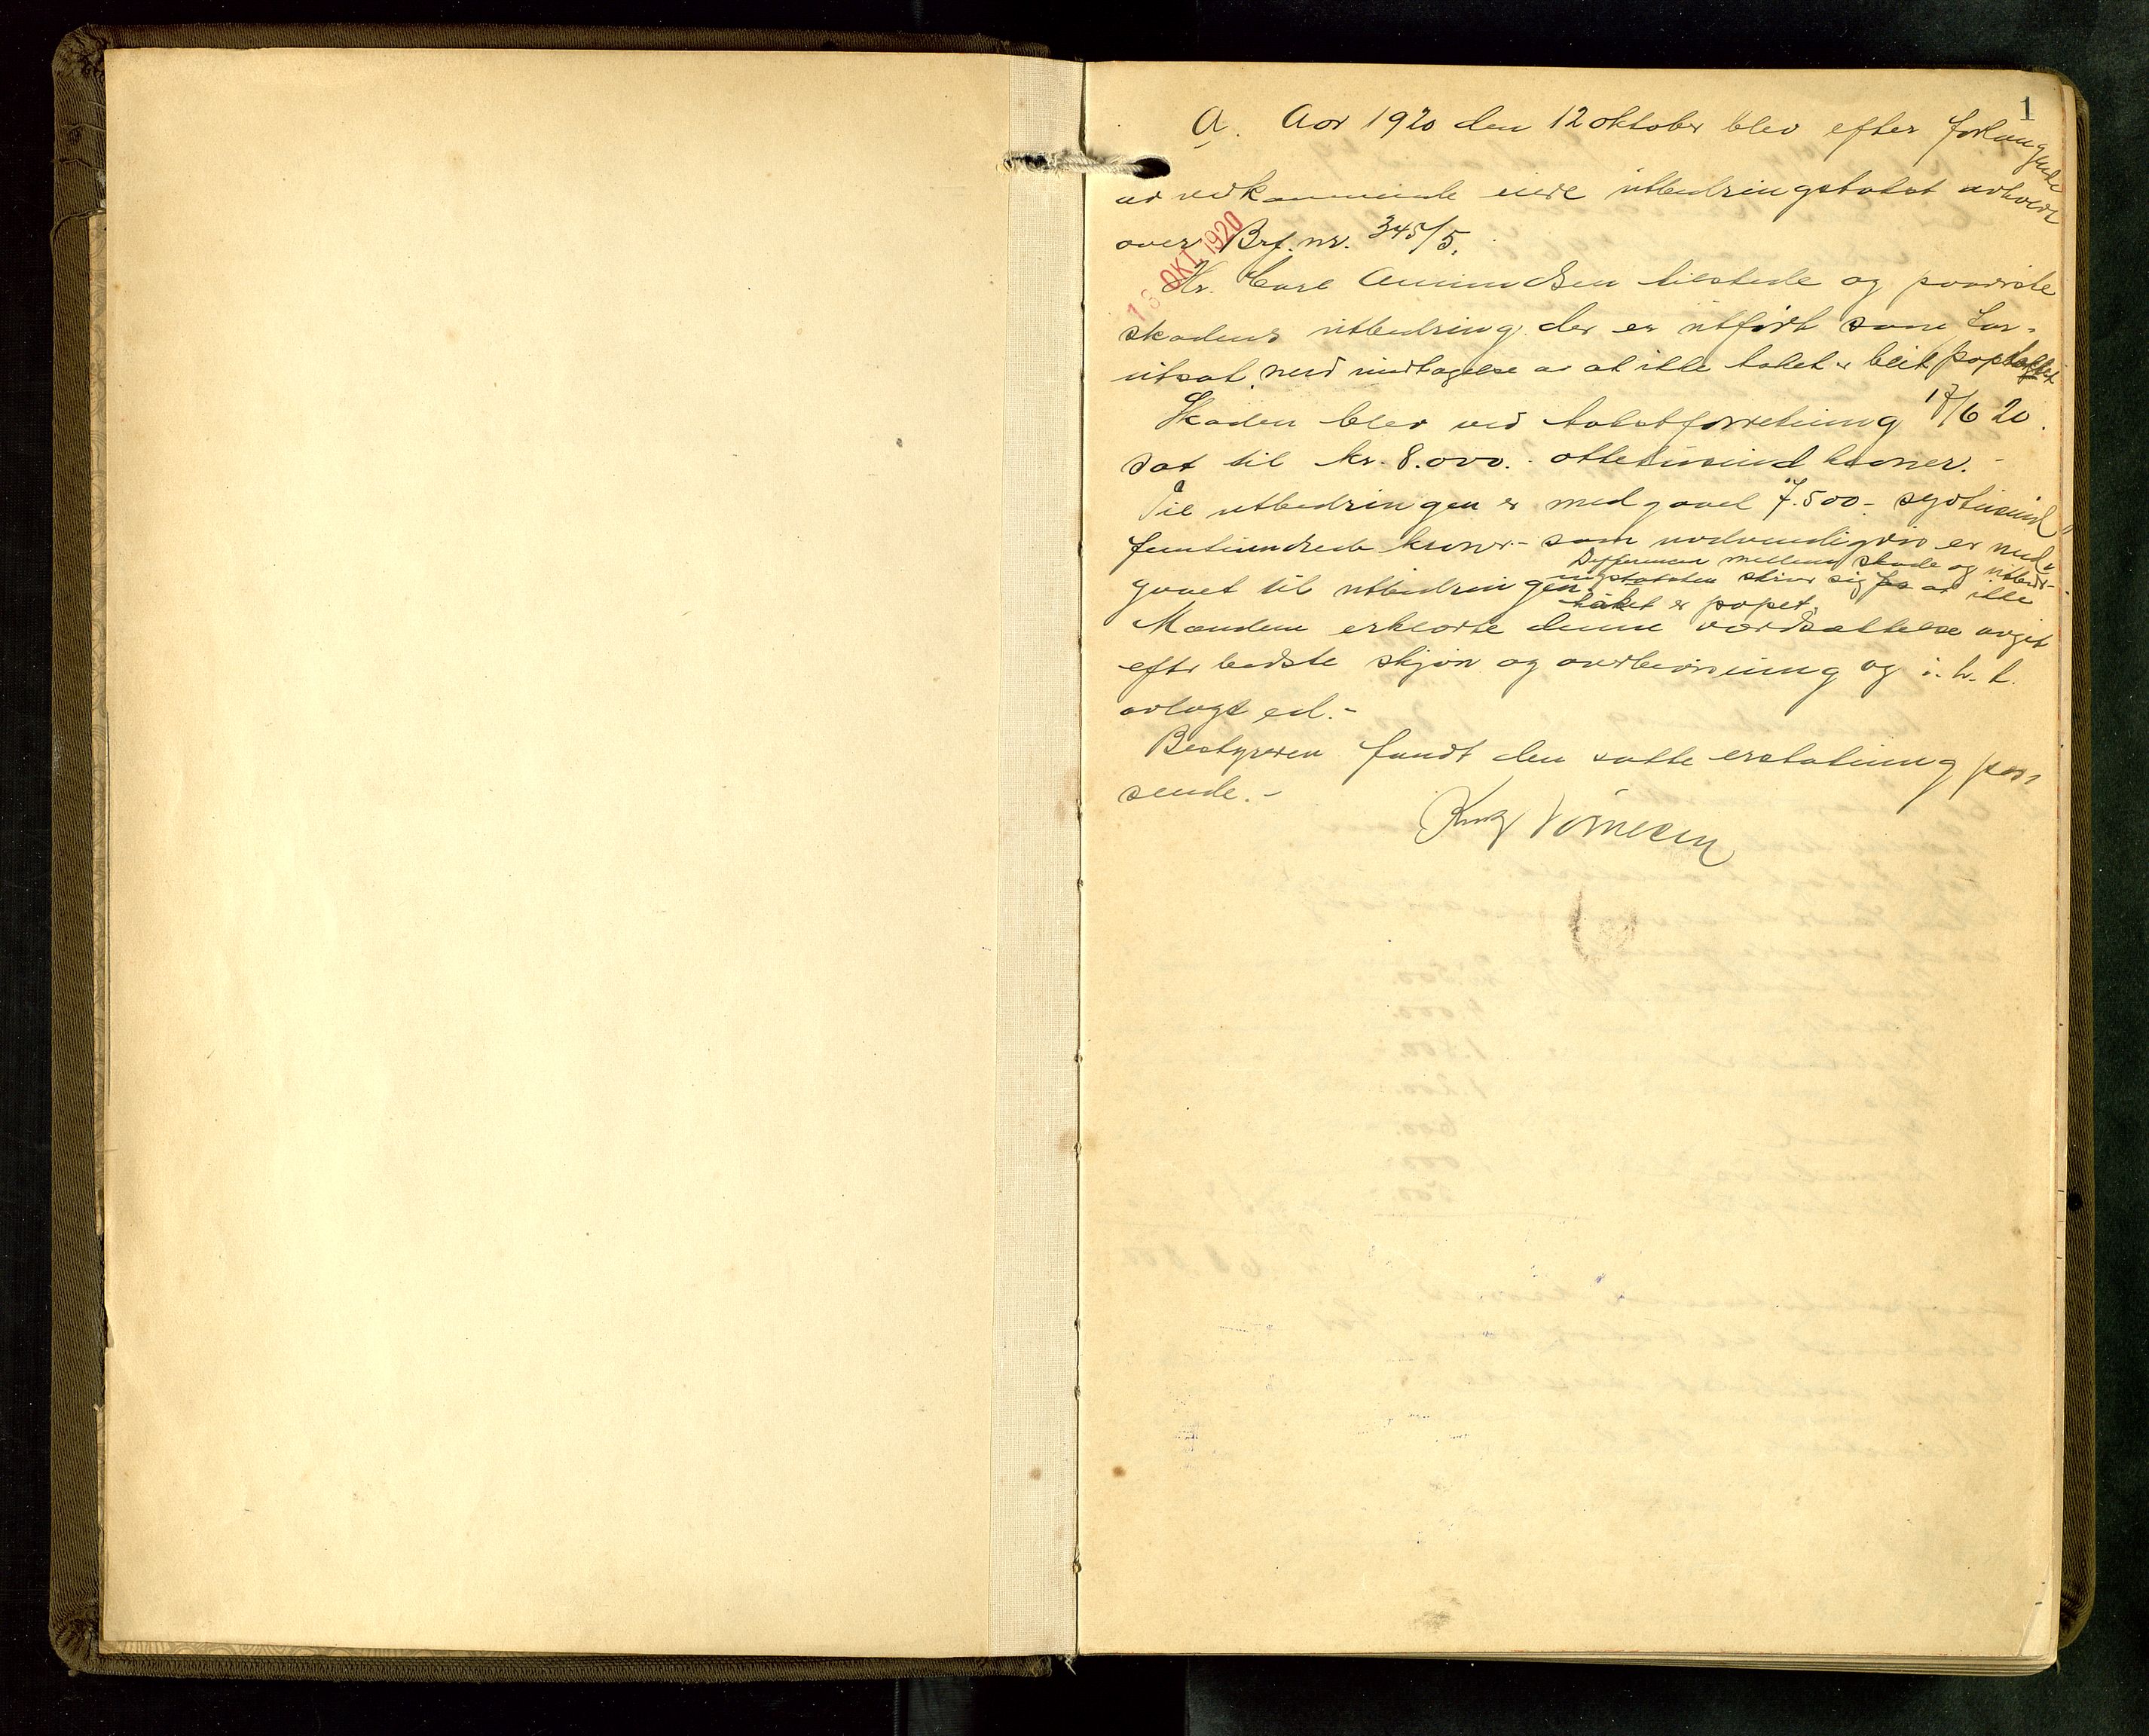 1
A. Aar 1920 den 12 oktober blev efter forlangende
av vedkommende eiere utbedringstakst avholdt
over Brf. nr. 345/5.
13 OKT 1920
Hr. Carl Amundsen tilstede og paaviste
skadens utbedring der er utført som for-
utsat, med undtagelse av at ikke taket er blit paptækket
Skaden blev ved takstforretning 17/6 20.
sat til kr. 8.000.- ottetusind kroner.-
Til utbedringen er medgaaet 7.500.- syvtusind
femhundrede kroner.- som nødvendigvis er med-
gaaet til utbedringen. Differencen mellem skade og utbedr-
ingstaksten skriver sig fra at ikke
taket er papet.
Mændene erklærte denne værdsættelse avgit
efter bedste skjøn og overbevisning og i. h. t.
avlagt ed.-
Bestyreren fandt den satte erstatning pas-
sende.-